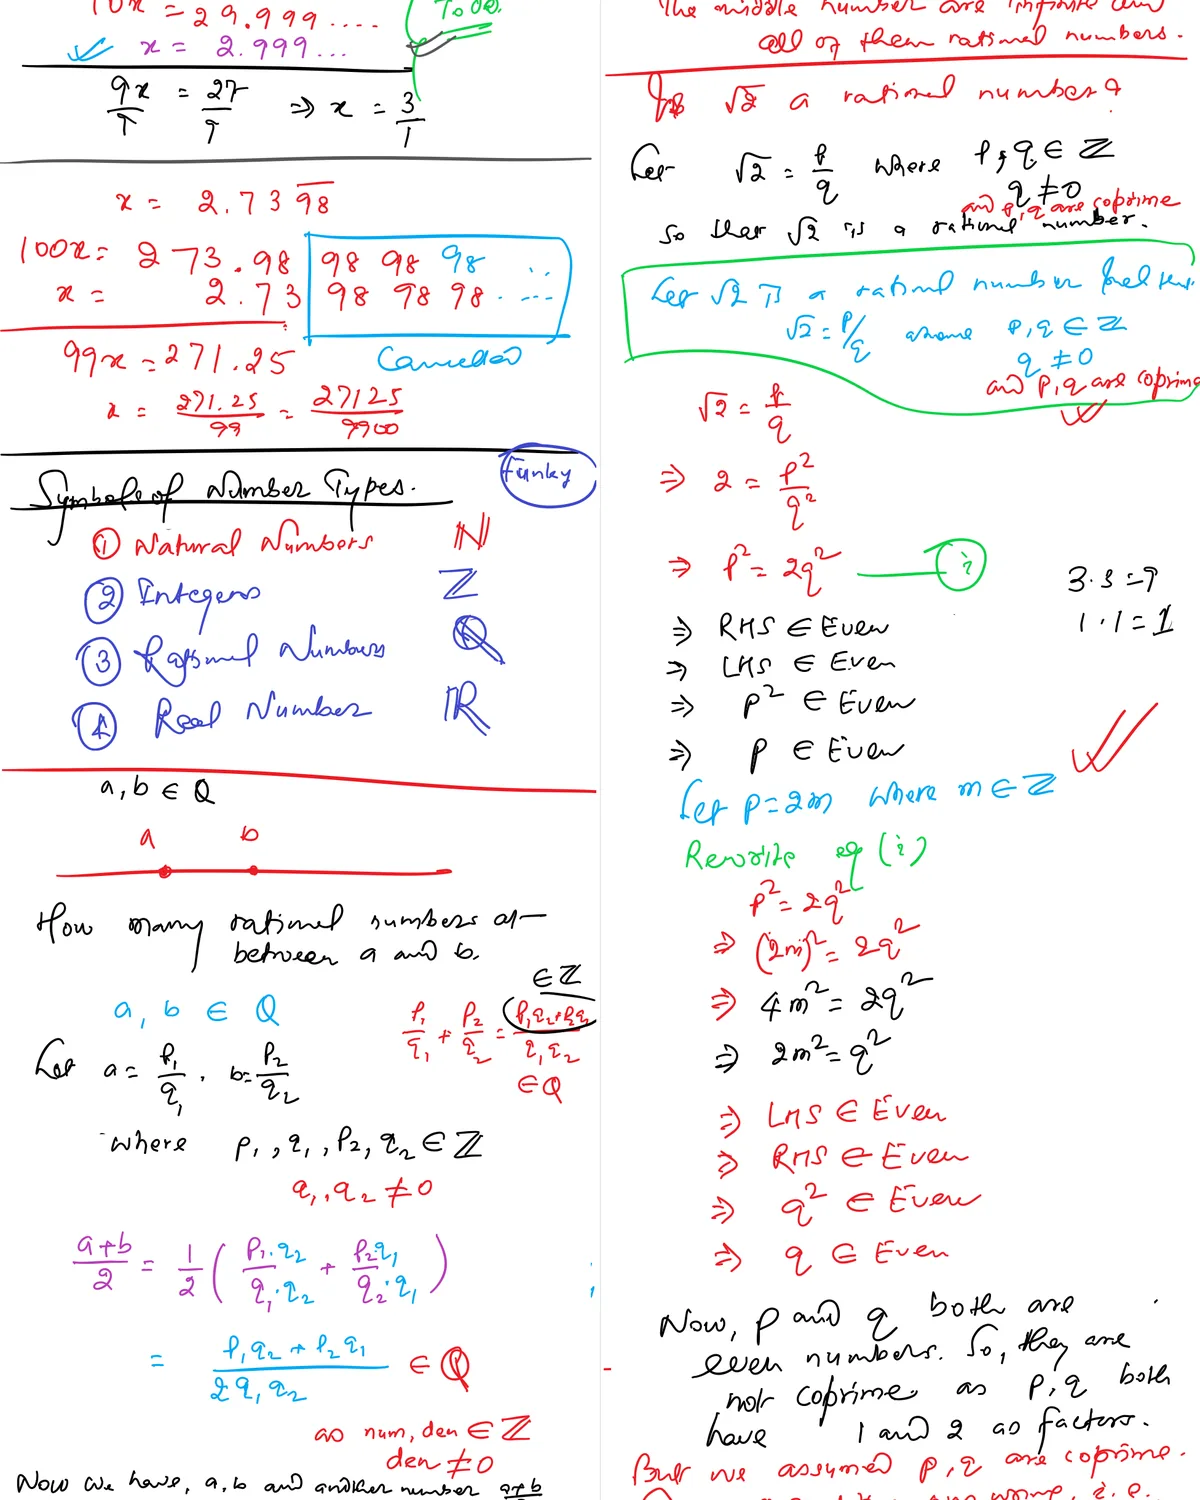 10x = 29.999....
x = 2.999...
To do.
9x/9 = 27/9 ⇒ x = 3/1
x = 2.73 9̅8̅
100x = 273.98 98 98 98 ...
x = 2.73 98 98 98. ....
99x = 271.25 Cancelled
x = 271.25/99 = 27125/9900
Funky
Symbols of Number Types.
① Natural Numbers ℕ
② Integers ℤ
③ Rational Numbers ℚ
④ Real Number ℝ
a, b ∈ Q
a b
How many rational numbers are
between a and b.
a, b ∈ Q
Let a = p₁/q₁ , b = p₂/q₂
p₁/q₁ + p₂/q₂ = p₁q₂+p₂q₁/q₁q₂
∈ ℤ
∈ Q
where p₁, q₁, p₂, q₂ ∈ ℤ
q₁, q₂ ≠ 0
a+b/2 = 1/2 ( p₁·q₂/q₁·q₂ + p₂q₁/q₂·q₁ )
= p₁q₂ + p₂q₁/2q₁q₂ ∈ ℚ
as num, den ∈ ℤ
den ≠ 0
Now we have, a, b and another number a+b
The middle number are infinite and
all of them rational numbers.
Is √2 a rational number?
Let √2 = p/q where p, q ∈ ℤ
q ≠ 0
and p, q are coprime
so that √2 is a rational number.
Let √2 is a rational number
√2 = p/q where p, q ∈ ℤ
q ≠ 0
and p, q are coprime
√2 = p/q
⇒ 2 = p²/q²
⇒ p² = 2q² — i
3·3 = 9
1·1 = 1
⇒ RHS ∈ Even
⇒ LHS ∈ Even
⇒ p² ∈ Even
⇒ p ∈ Even
Let p = 2m where m ∈ ℤ
Rewrite eq (i)
p² = 2q²
⇒ (2m)² = 2q²
⇒ 4m² = 2q²
⇒ 2m² = q²
⇒ LHS ∈ Even
⇒ RHS ∈ Even
⇒ q² ∈ Even
⇒ q ∈ Even
Now, p and q both are
even numbers. So, they are
not coprime as p, q both
have 1 and 2 as factors.
But we assumed p, q are coprime.
are wrong, i.e.